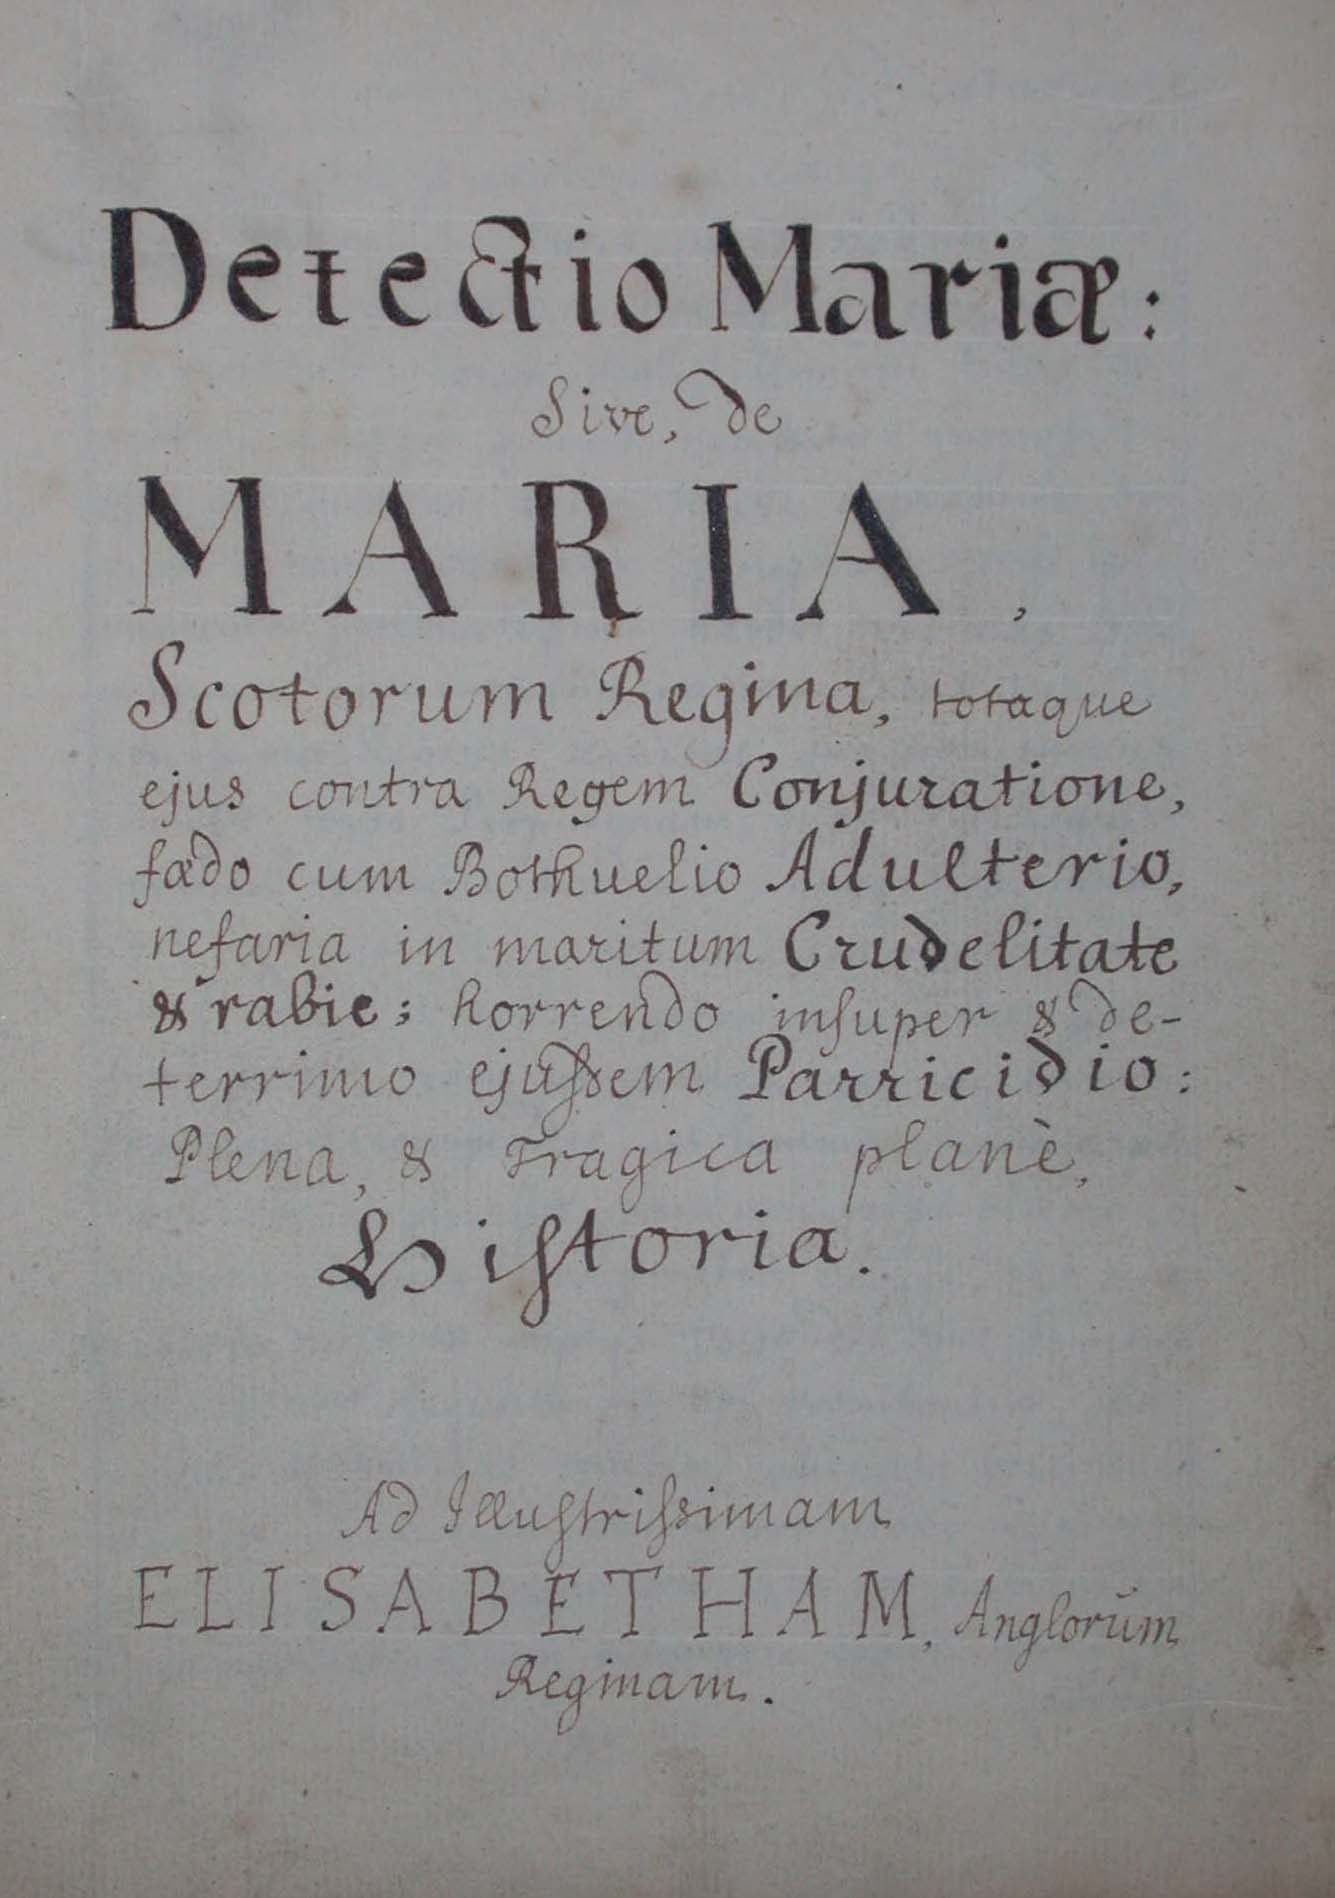 Detectio Mariæ:
Sive, de
MARIA,
Scotorum Regina, totaque
ejus contra Regem Conjuratione,
fædo cum Bothuelio Adulterio,
nefaria in maritum Crudelitate
& rabie; horrendo inſuper & de-
terrimo ejuſdem Parricidio:
Plena, & Tragica planè,
Hiſtoria.
Ad Illuſtriſsimam
ELISABETHAM, Anglorūm
Reginam.